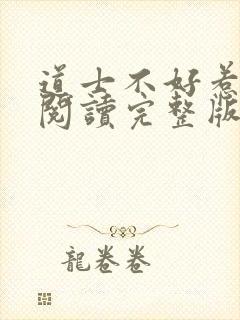 道士不好惹
閱讀完整版
龍卷卷